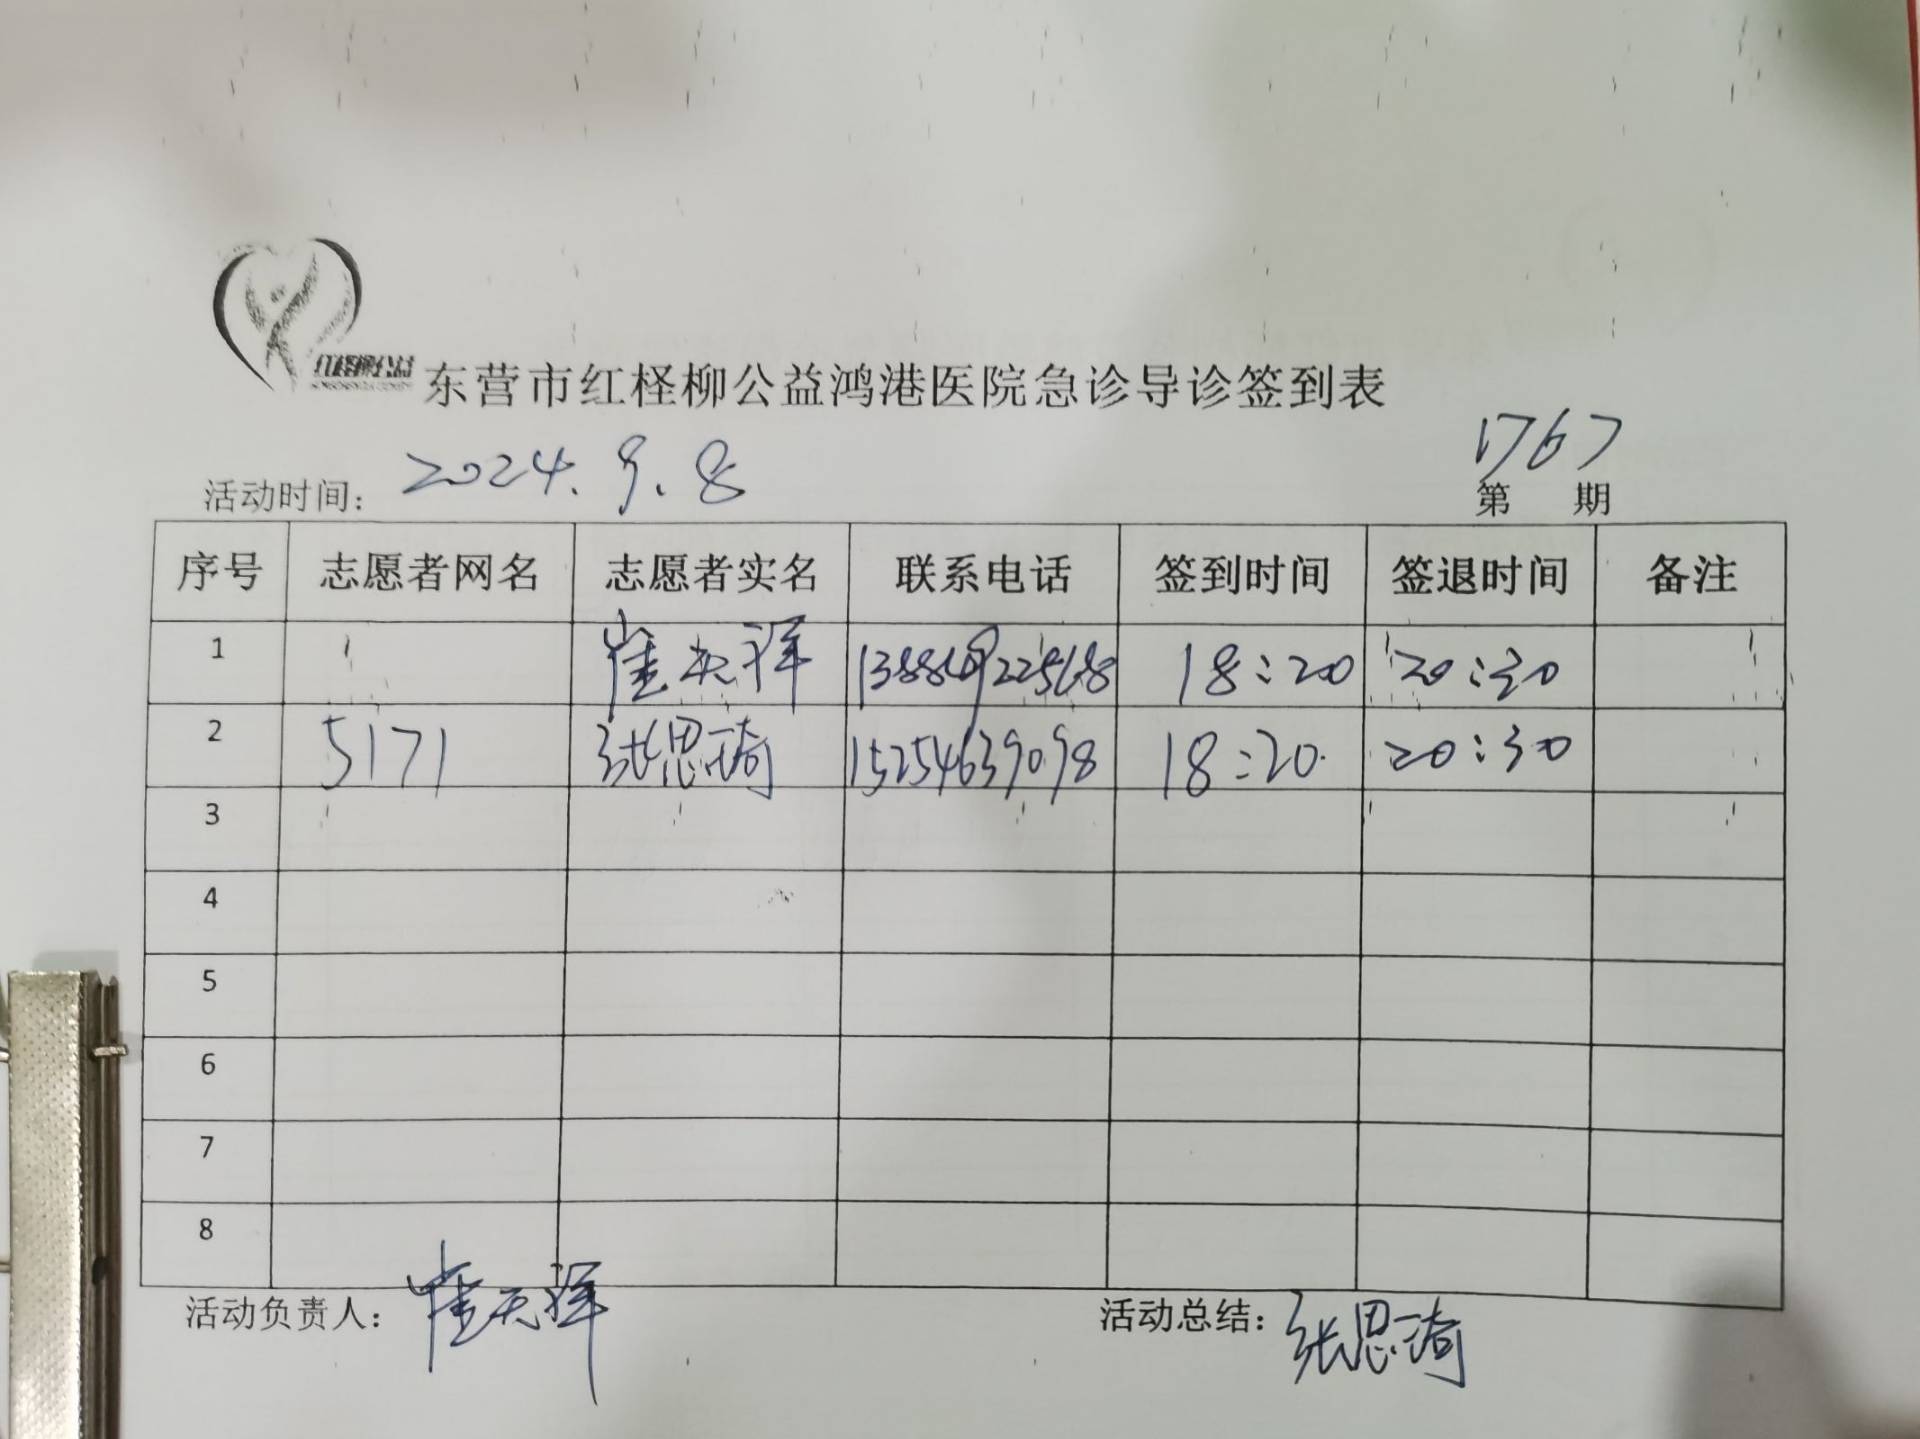 红柽柳公益
东营市红柽柳公益鸿港医院急诊导诊签到表
活动时间：2024.9.8 第1767期
序号 志愿者网名 志愿者实名 联系电话 签到时间 签退时间 备注
1 崔天洋 18:20 20:30
2 5171 张思琦 15254639098 18:20 20:30
3
4
5
6
7
8
活动负责人：崔天洋 活动总结：张思琦